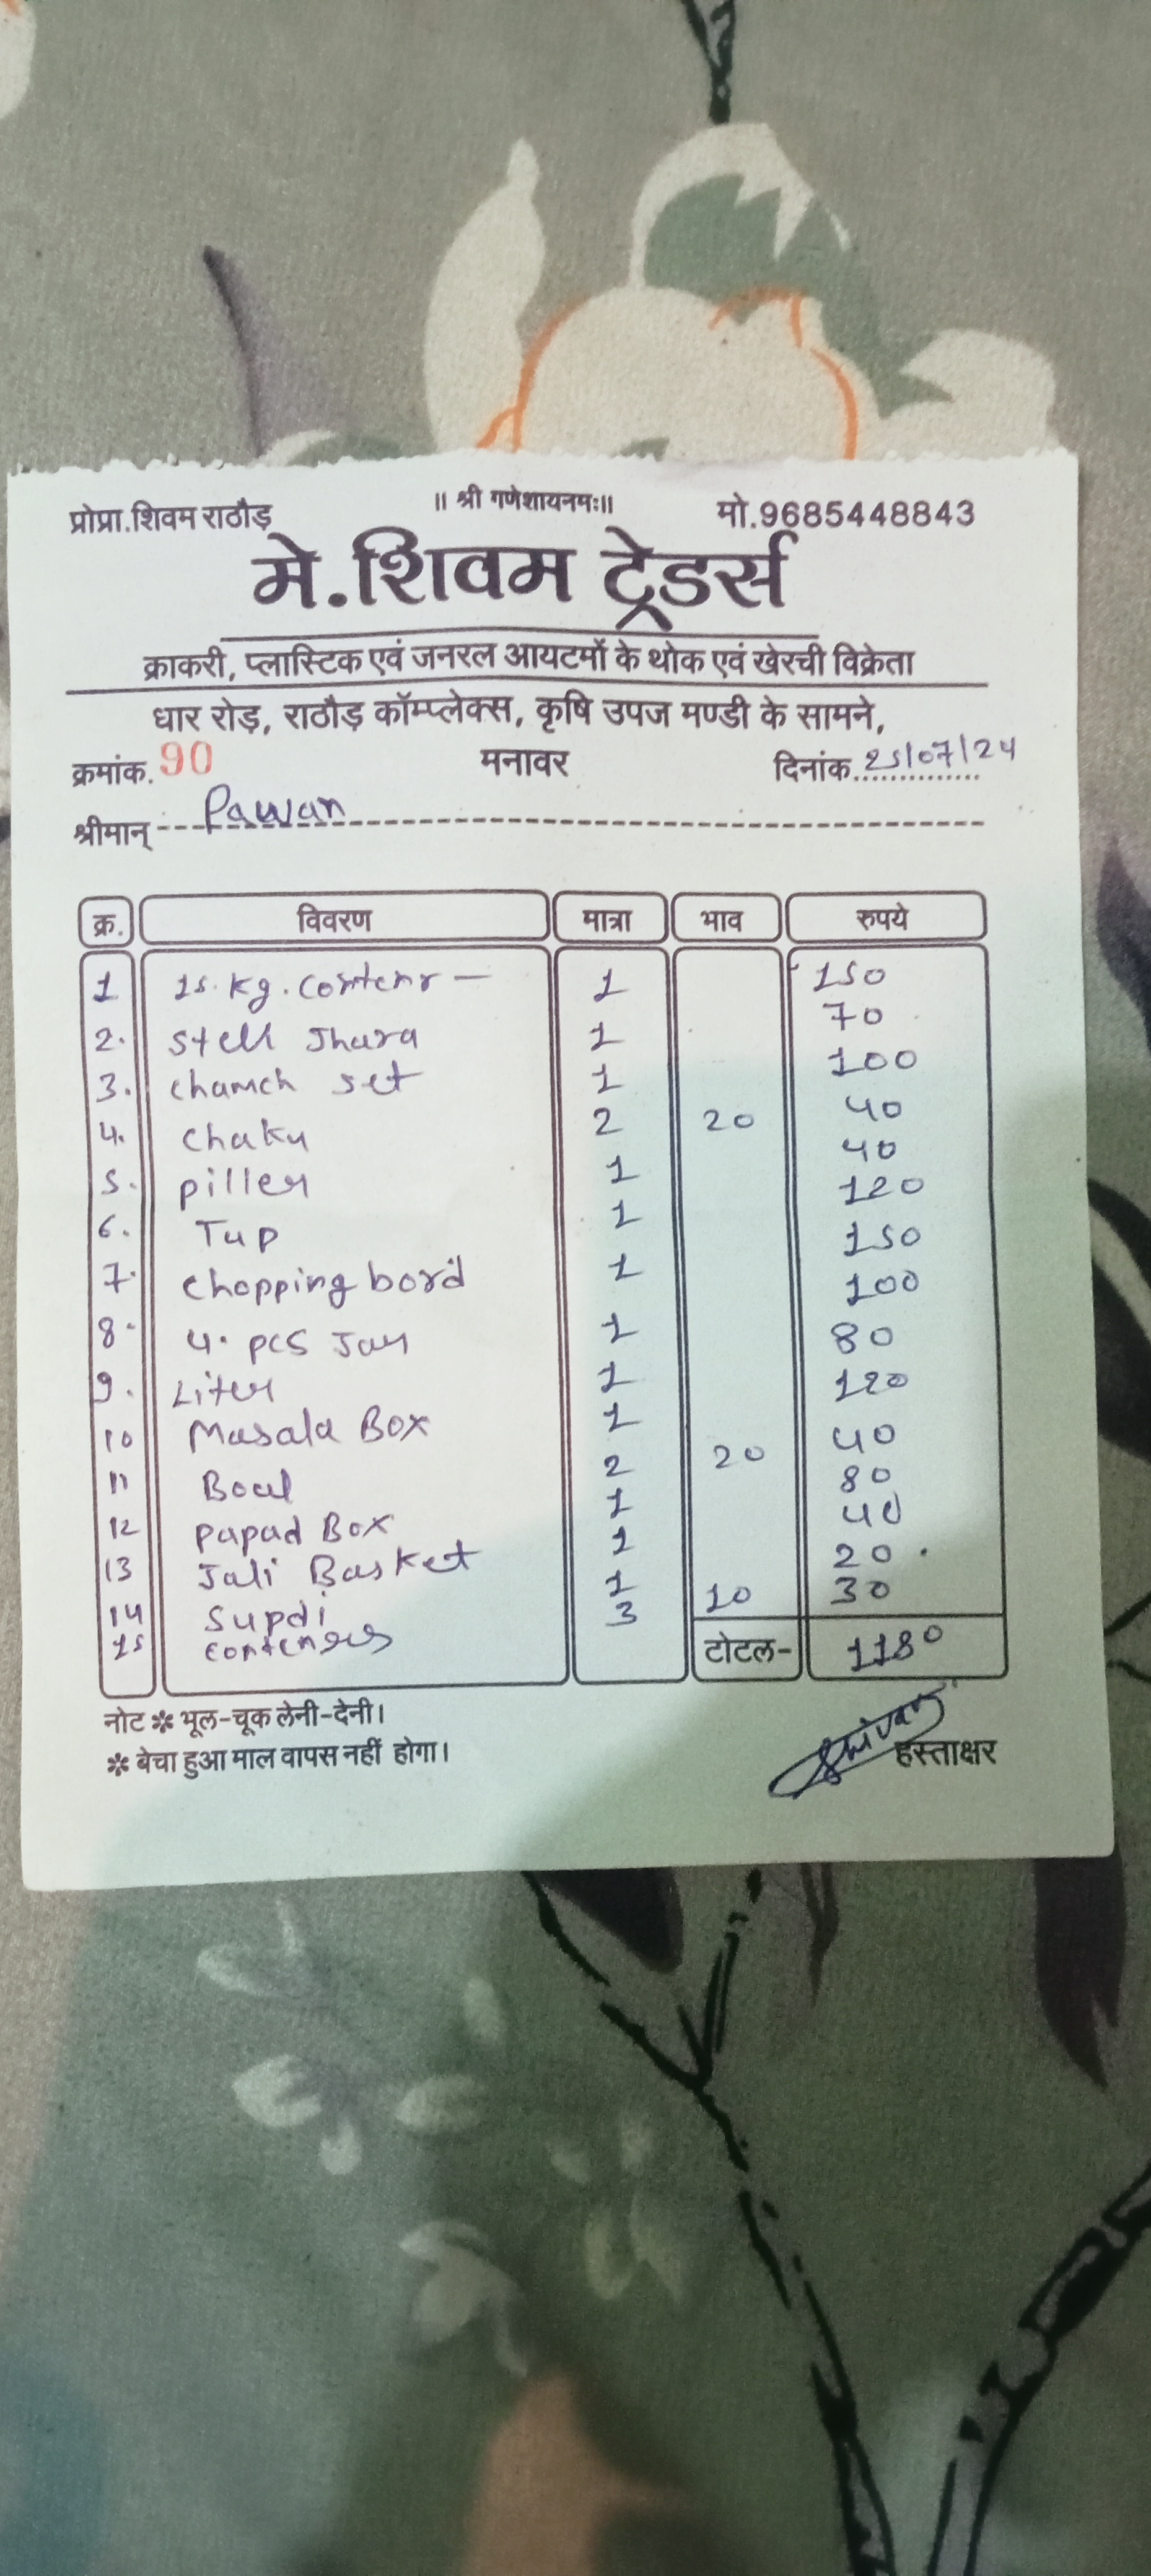 ॥ श्री गणेशायनमः॥
प्रोप्रा.शिवम राठौड़ मो.9685448843
मे.शिवम ट्रेडर्स
क्राकरी, प्लास्टिक एवं जनरल आयटमों के थोक एवं खेरची विक्रेता
धार रोड़, राठौड़ कॉम्प्लेक्स, कृषि उपज मण्डी के सामने,
क्रमांक. 90 मनावर दिनांक. 25/07/24
श्रीमान् Pawan
क्र. विवरण मात्रा भाव रुपये
1 15. kg. Contenr — 1 150
2. Stell Jhara 1 70
3. chamch set 1 100
4. chaku 2 20 40
5. piller 1 40
6. Tup 1 120
7. chopping bord 1 150
8. 4. pcs Jar 1 100
9. Liter 1 80
10 Masala Box 1 120
11 Boul 2 20 40
12 Papad Box 1 80
13 Jali Basket 1 40
14 Supdi 1 20
15 contenrs 3 10 30
टोटल- 1180
नोट ✽ भूल-चूक लेनी-देनी।
✽ बेचा हुआ माल वापस नहीं होगा।
Shivam
हस्ताक्षर